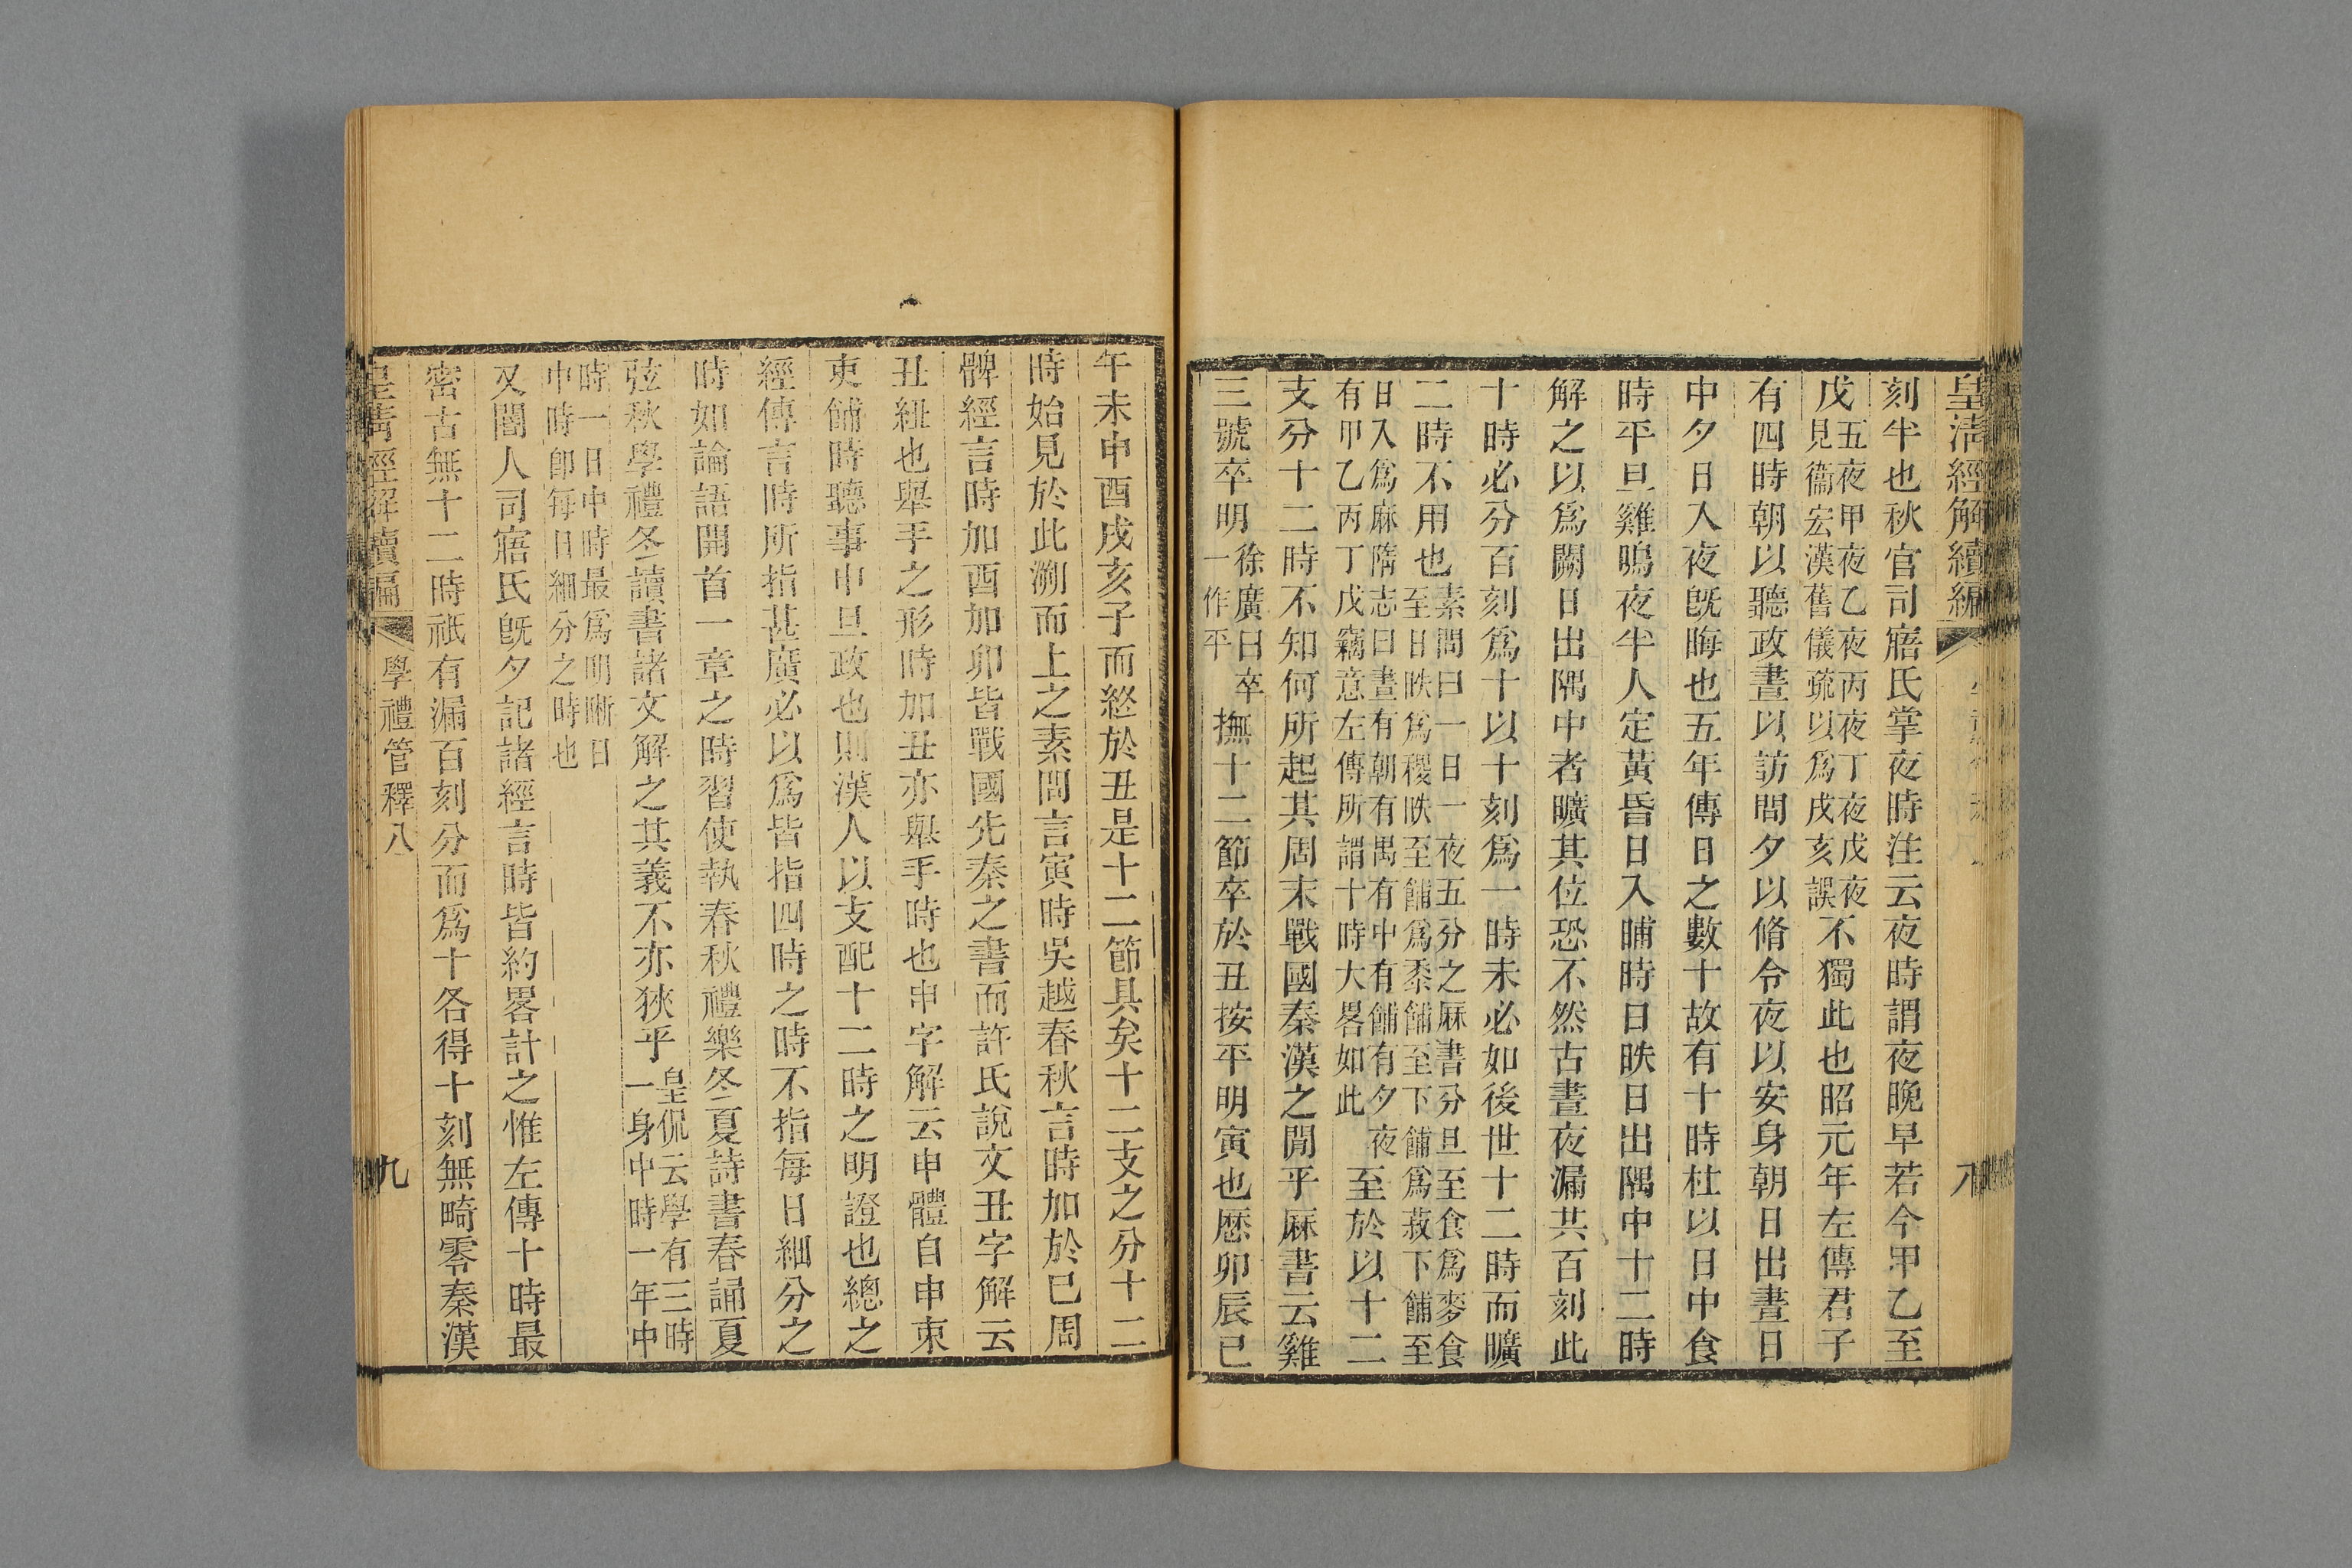 皇清經解續編
八
刻半也秋官司寤氏掌夜時注云夜時謂夜晚早若今甲乙至
戊五夜甲夜乙夜丙夜丁夜戊夜見衞宏漢舊儀疏以爲戌亥誤不獨此也昭元年左傳君子
有四時朝以聽政晝以訪問夕以脩令夜以安身朝日出晝日
中夕日入夜旣晦也五年傳日之數十故有十時杜以日中食
時平旦雞鳴夜半人定黃昏日入晡時日昳日出隅中十二時
解之以爲闕日出隅中者曠其位恐不然古晝夜漏共百刻此
十時必分百刻爲十以十刻爲一時未必如後世十二時而曠
二時不用也素問曰一日一夜五分之厤書分旦至食爲麥食至日昳爲稷昳至餔爲黍餔至下餔爲菽下餔至
日入爲麻隋志曰晝有朝有禺有中有餔有夕夜有甲乙丙丁戊竊意左傳所謂十時大畧如此至於以十二
支分十二時不知何所起其周末戰國秦漢之閒乎厤書云雞
三號卒明徐廣曰卒一作平撫十二節卒於丑按平明寅也歷卯辰巳
午未申酉戌亥子而終於丑是十二節具矣十二支之分十二
時始見於此溯而上之素問言寅時吳越春秋言時加於巳周
髀經言時加酉加卯皆戰國先秦之書而許氏說文丑字解云
丑紐也舉手之形時加丑亦舉手時也申字解云申體自申束
吏餔時聽事申旦政也則漢人以支配十二時之明證也總之
經傳言時所指甚廣必以爲皆指四時之時不指每日細分之
時如論語開首一章之時習使執春秋禮樂冬夏詩書春誦夏
弦秋學禮冬讀書諸文解之其義不亦狹乎皇侃云學有三時一身中時一年中
時一日中時最爲明晰日中時卽每日細分之時也
又閽人司寤氏旣夕記諸經言時皆約畧計之惟左傳十時最
密古無十二時祇有漏百刻分而爲十各得十刻無畸零秦漢
皇清經解續編
學禮管釋八
九